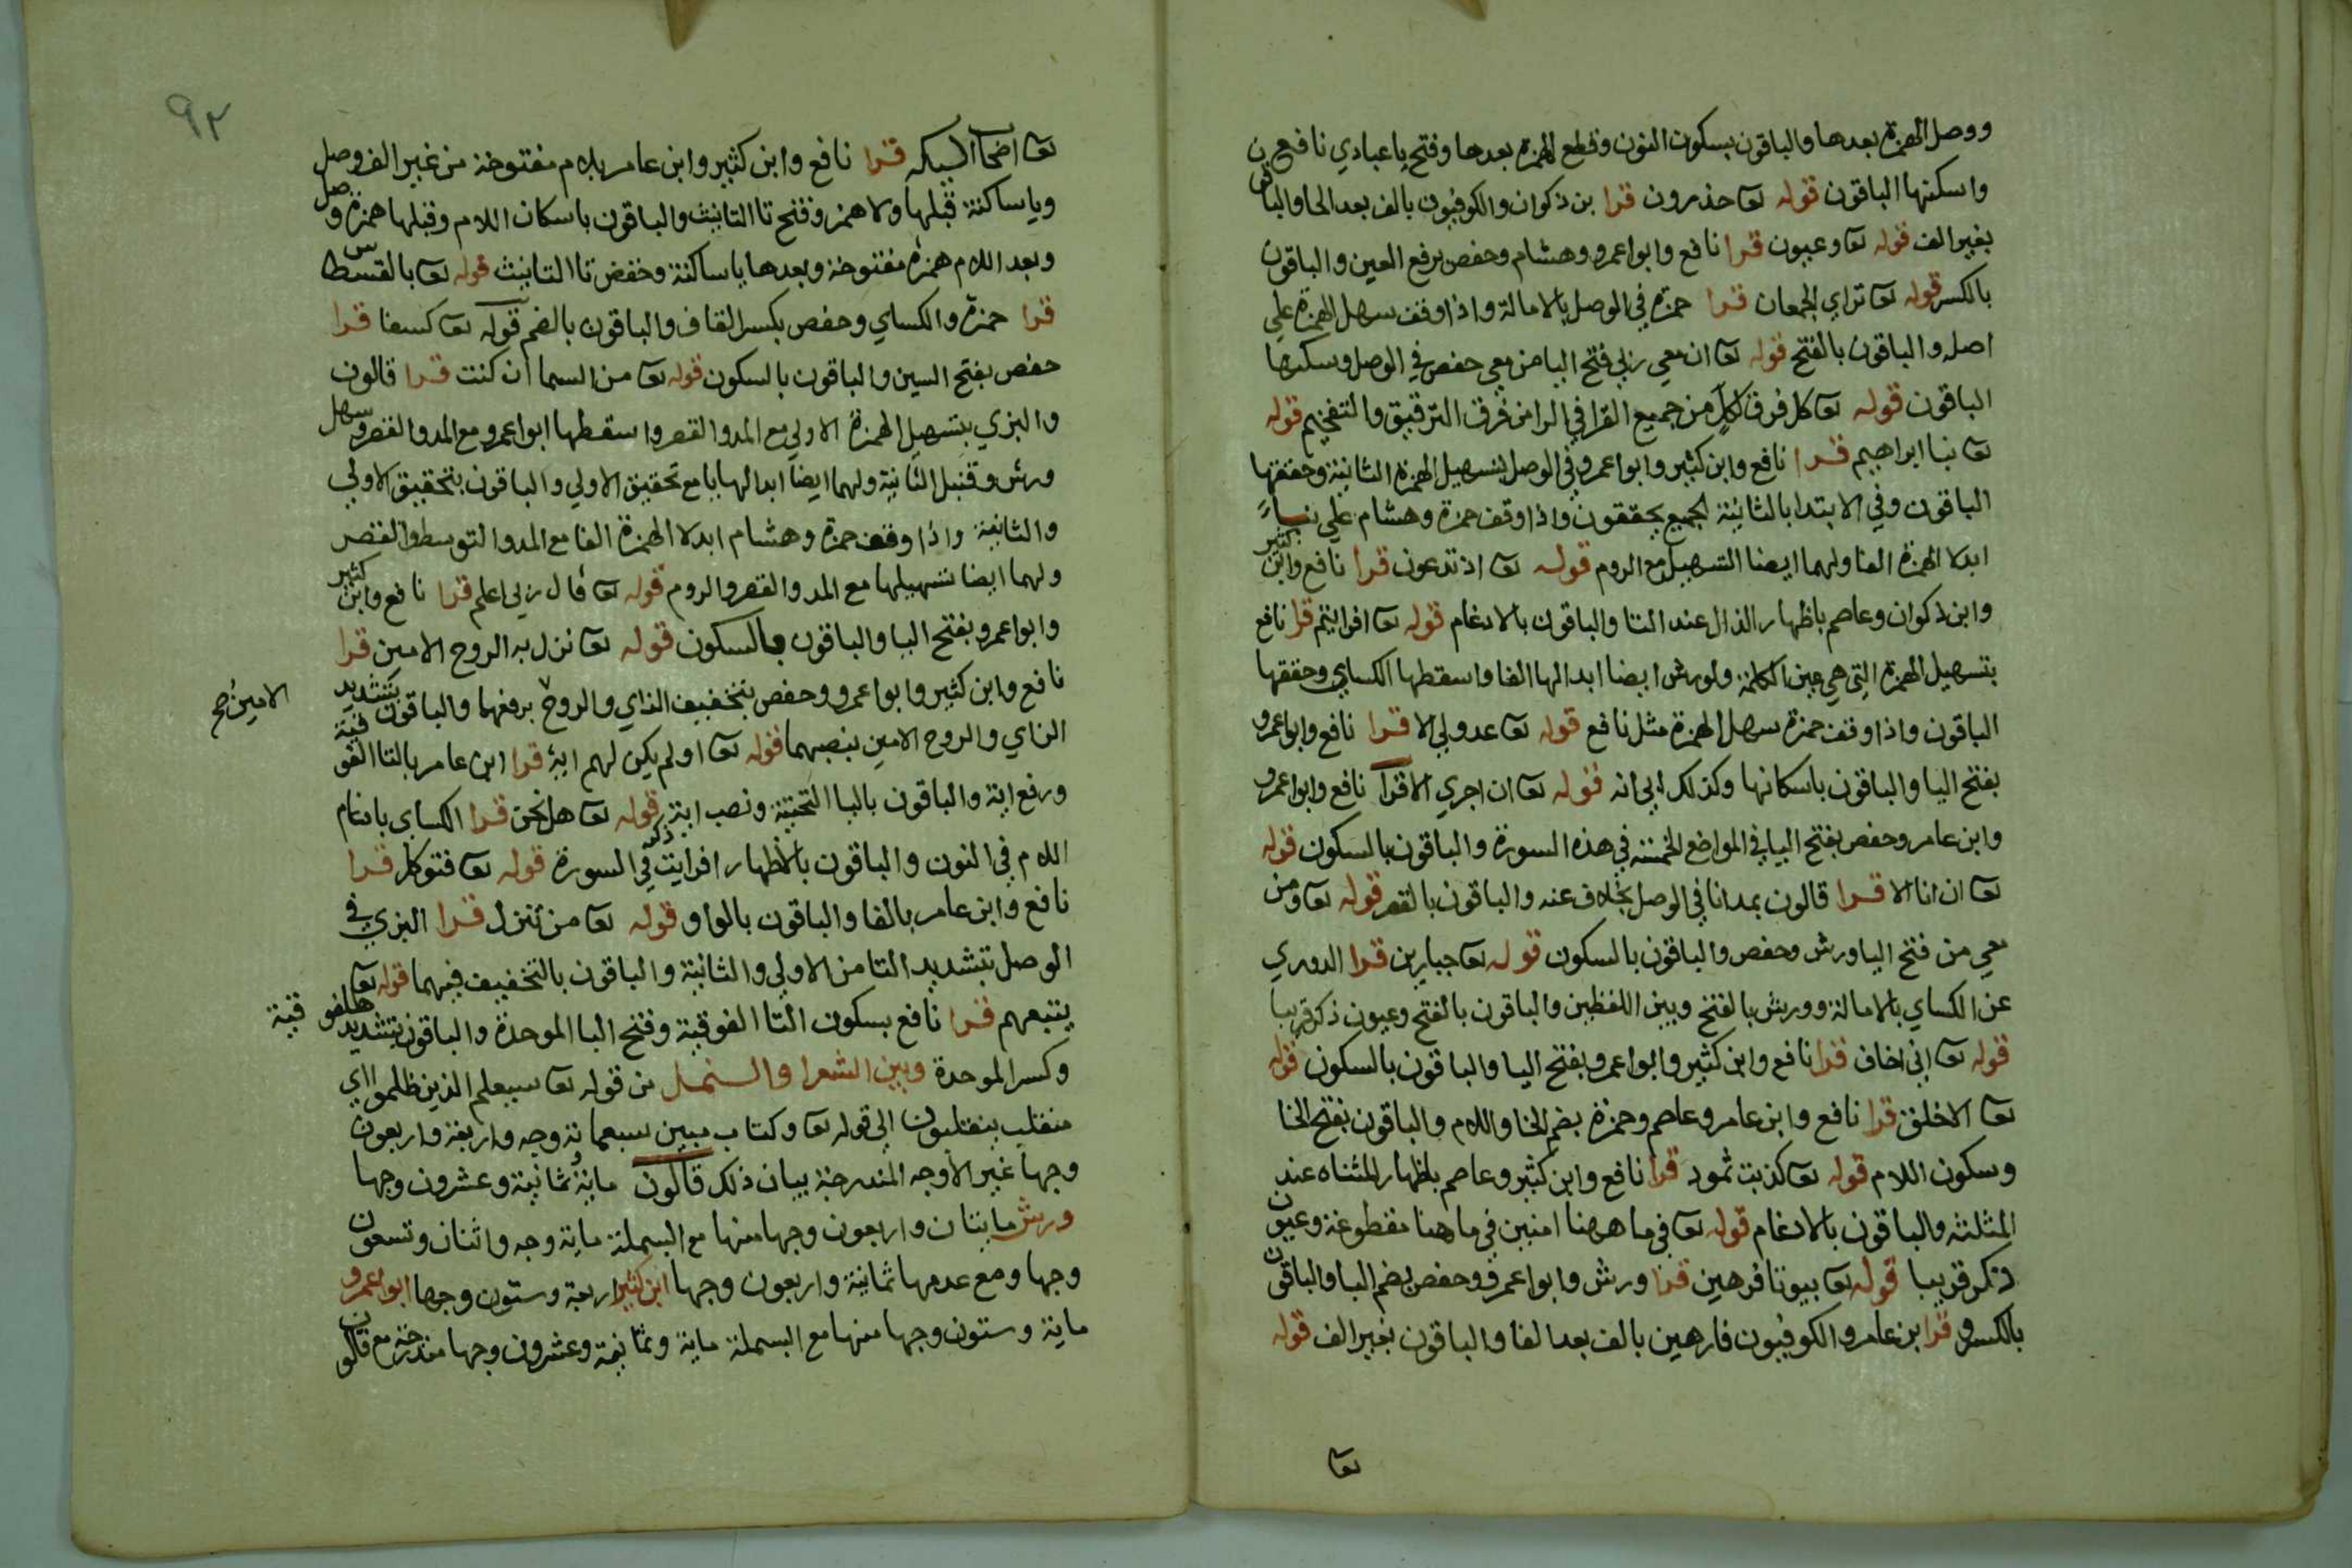 ووصل الهمزة بعدها والباقون بسكون النون وقطع الهمزة بعدها وفتح يا عبادي نافع
واسكنها الباقون قوله تعا حذرون قرا بن ذكوان والكوفيون بالف بعد الحا والباقون
بغير الف قوله تعا وعيون قرا نافع وابوا عمرو وهشام وحفص برفع العين والباقون
بالكسر قوله تعا تراي الجمعان قرا حمزة في الوصل بالامالة واذا وقف سهل الهمزة علي
اصله والباقون بالفتح قوله تعا ان معي ربي فتح اليا من معي حفص في الوصل وسكنها
الباقون قوله تعا كل فرق لكل من جميع القرا في الرا من فرق الترقيق والتفخيم قوله
تعا نبا ابراهيم قرا نافع وابن كثير وابوا عمرو في الوصل بتسهيل الهمزة الثانية وحققها
الباقون وفي الابتدا بالثانية الجميع يحققون واذا وقف حمزة وهشام علي نبا
ابدلا الهمزة الفا ولهما ايضا التسهيل مع الروم قوله تعا اذ تدعون قرا نافع وابن كثير
وابن ذكوان وعاصم باظهار الذال عند التا والباقون بالادغام قوله تعا افرايتم قرا نافع
بتسهيل الهمزة التي هي عين الكلمة ولورش ايضا ابدالها الفا واسقطها الكساي وحققها
الباقون واذا وقف حمزة سهل الهمزة مثل نافع قوله تعا عدو لي الا قرا نافع وابوا عمرو
بفتح اليا والباقون باسكانها وكذلك ابي انه قوله تعا ان اجري الا قرا نافع وابوا عمرو
وابن عامر وحفص بفتح اليا في المواضع الخمسة في هذه السورة والباقون بالسكون قوله
تعا ان انا الا قرا قالون بمد انا في الوصل بخلاف عنه والباقون بالقصر قوله تعا ومن
معي من فتح اليا ورش وحفص والباقون بالسكون قوله تعا جبارين قرا الدوري
عن الكساي بالامالة وورش بالفتح وبين اللفظين والباقون بالفتح وعيون ذكر قريبا
قوله تعا اني اخاف قرا نافع وابن كثير وابوا عمرو بفتح اليا والباقون بالسكون قوله
تعا الا خلق قرا نافع وابن عامر وعاصم وحمزة بضم الخا واللام والباقون بفتح الخا
وسكون اللام قوله تعا كذبت ثمود قرا نافع وابن كثير وعاصم باظهار المثناه عند
المثلثة والباقون بالادغام قوله تعا في ما ههنا امنين في ما هنا مقطوعة وعيون
ذكر قريبا قوله تعا بيوتا فرهين قرا ورش وابوا عمرو وحفص بضم البا والباقون
بالكسر وقرا ابن عامر والكوفيون فارهين بالف بعد الفا والباقون بغير الف قوله
تعا
٩٢
تعا اصحا ليكه قرا نافع وابن كثير وابن عامر بلام مفتوحة من غير الف وصل
ويا ساكنة قبلها ولا همز وفتح تا التانيث والباقون باسكان اللام وقبلها همزة وصل
وبعد اللام همزة مفتوحة وبعدها يا ساكنة وخفض تا التانيث قوله تعا بالقسطاس
قرا حمزة والكساي وحفص بكسر القاف والباقون بالضم قوله تعا كسفا قرا
حفص بفتح السين والباقون بالسكون قوله تعا من السما ان كنت قرا قالون
والبزي بتسهيل الهمزة الاولي مع المد والقصر واسقطها ابوا عمرو مع المد والقصر وسهل
ورش وقنبل الثانية ولهما ايضا ابدالها يا مع تحقيق الاولي والباقون بتحقيق الاولي
والثانية واذا وقف حمزة وهشام ابدلا الهمزة الفا مع المد والتوسط والقصر
ولهما ايضا تسهيلها مع المد والقصر والروم قوله تعا قال ربي اعلم قرا نافع وابن كثير
وابوا عمرو بفتح اليا والباقون بالسكون قوله تعا نزل به الروح الامين قرا
نافع وابن كثير وابوا عمرو وحفص بتخفيف الزاي والروح برفعهما والباقون بتشديد
الامين صح
الزاي والروح الامين بنصبهما قوله تعا اولم يكن لهم اية قرا ابن عامر بالتا الفوقية
ورفع اية والباقون باليا التحتية ونصب اية قوله تعا هل نحن قرا الكساي بادغام
اللام في النون والباقون بالاظهار افرايت ذكر في السورة قوله تعا فتوكل قرا
نافع وابن عامر بالفا والباقون بالواو قوله تعا من تنزل قرا البزي في
الوصل بتشديد التا من الاولي والثانية والباقون بالتخفيف فيهما قوله تعا
يتبعهم قرا نافع بسكون التا الفوقية وفتح البا الموحدة والباقون بتشديد الفوقية
وكسر الموحدة وبين الشعرا والنمل من قوله تعا سيعلم الذين ظلموا اي
منقلب ينقلبون الي قوله تعا وكتاب مبين سبعماية وجه واربعة واربعون
وجها غير الاوجه المندرجة بيان ذلك قالون ماية وثمانية وعشرون وجها
ورش مايتان واربعون وجها منها مع البسملة ماية وجه واثنان وتسعون
وجها ومع عدمها ثمانية واربعون وجها ابن كثير اربعة وستون وجها ابوا عمرو
ماية وستون وجها منها مع البسملة ماية وثمانية وعشرون وجها مندرجة مع قالون